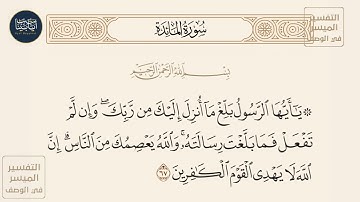 سُورَةُ المَائِدَةِ
التفسير
الميسر
في الوصف
بِسْمِ اللَّهِ الرَّحْمَٰنِ الرَّحِيمِ
۞ يَٰٓأَيُّهَا ٱلرَّسُولُ بَلِّغْ مَآ أُنزِلَ إِلَيْكَ مِن رَّبِّكَۖ وَإِن لَّمْ
تَفْعَلْ فَمَا بَلَّغْتَ رِسَالَتَهُۥۚ وَٱللَّهُ يَعْصِمُكَ مِنَ ٱلنَّاسِۗ إِنَّ
ٱللَّهَ لَا يَهْدِى ٱلْقَوْمَ ٱلْكَٰفِرِينَ ٦٧
التفسير
الميسر
في الوصف